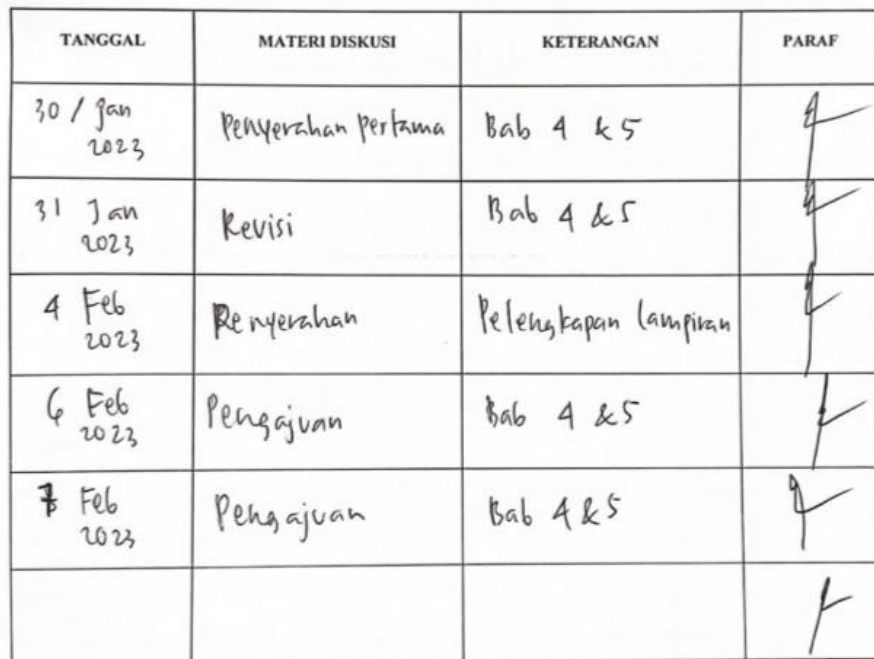 TANGGAL MATERI DISKUSI KETERANGAN PARAF
30 / Jan 2023 Penyerahan Pertama Bab 4 & 5
31 Jan 2023 Revisi Bab 4 & 5
4 Feb 2023 Penyerahan Pelengkapan lampiran
6 Feb 2023 Pengajuan Bab 4 & 5
7 Feb 2023 Pengajuan Bab 4 & 5